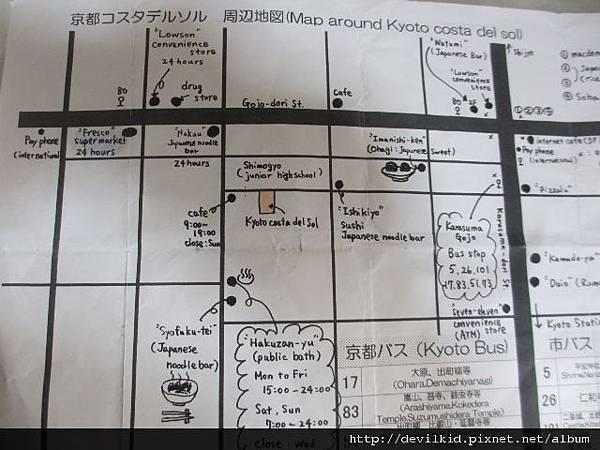 京都コスタデルソル 周辺地図(Map around Kyoto costa del sol)
"Lowson"
convenience
store
24 hours
drug
store
80
Gojo-dori St.
cafe
"Watami"
(Japanese Bar)
"Lowson"
convenience
store
80 2F
Shijo
①
②
③
④ Soba
①②③⑤
Pay phone
(international)
"Fresco"
supermarket
24 hours
"Nakau"
Japanese noodle
bar
24 hours
Shimogyo
(junior high school)
"Imanishi-ken"
(Ohagi: Japanese Sweet)
internet cafe
Pay phone
(international)
"Pizzalia"
cafe
9:00~
19:00
close:Sun
Kyoto costa del Sol
"Ishikiyo"
Sushi
Japanese noodle bar
Karasuma
Gojo
Bus stop
5,26,101
Karasuma-dori St
"Kamado-ya"
"Daio"
Kyoto Statio
"Seven-eleven"
convenience
(ATM) store
"Syofuku-tei"
(Japanese
noodle bar)
"Hakuzan-yu"
(public bath)
Mon to Fri
15:00~24:00
Sat, Sun
7:00~24:00
close: Wed
京都バス (Kyoto Bus)
市バス
17 大原、出町柳等
(Ohara.Demachiyanagi)
5
83 嵐山、苔寺、鈴虫寺等
(Arashiyama,Kokedera
Temple,Suzumushidera Temple)
26 仁和
101
http://devilkid.pixnet.net/album